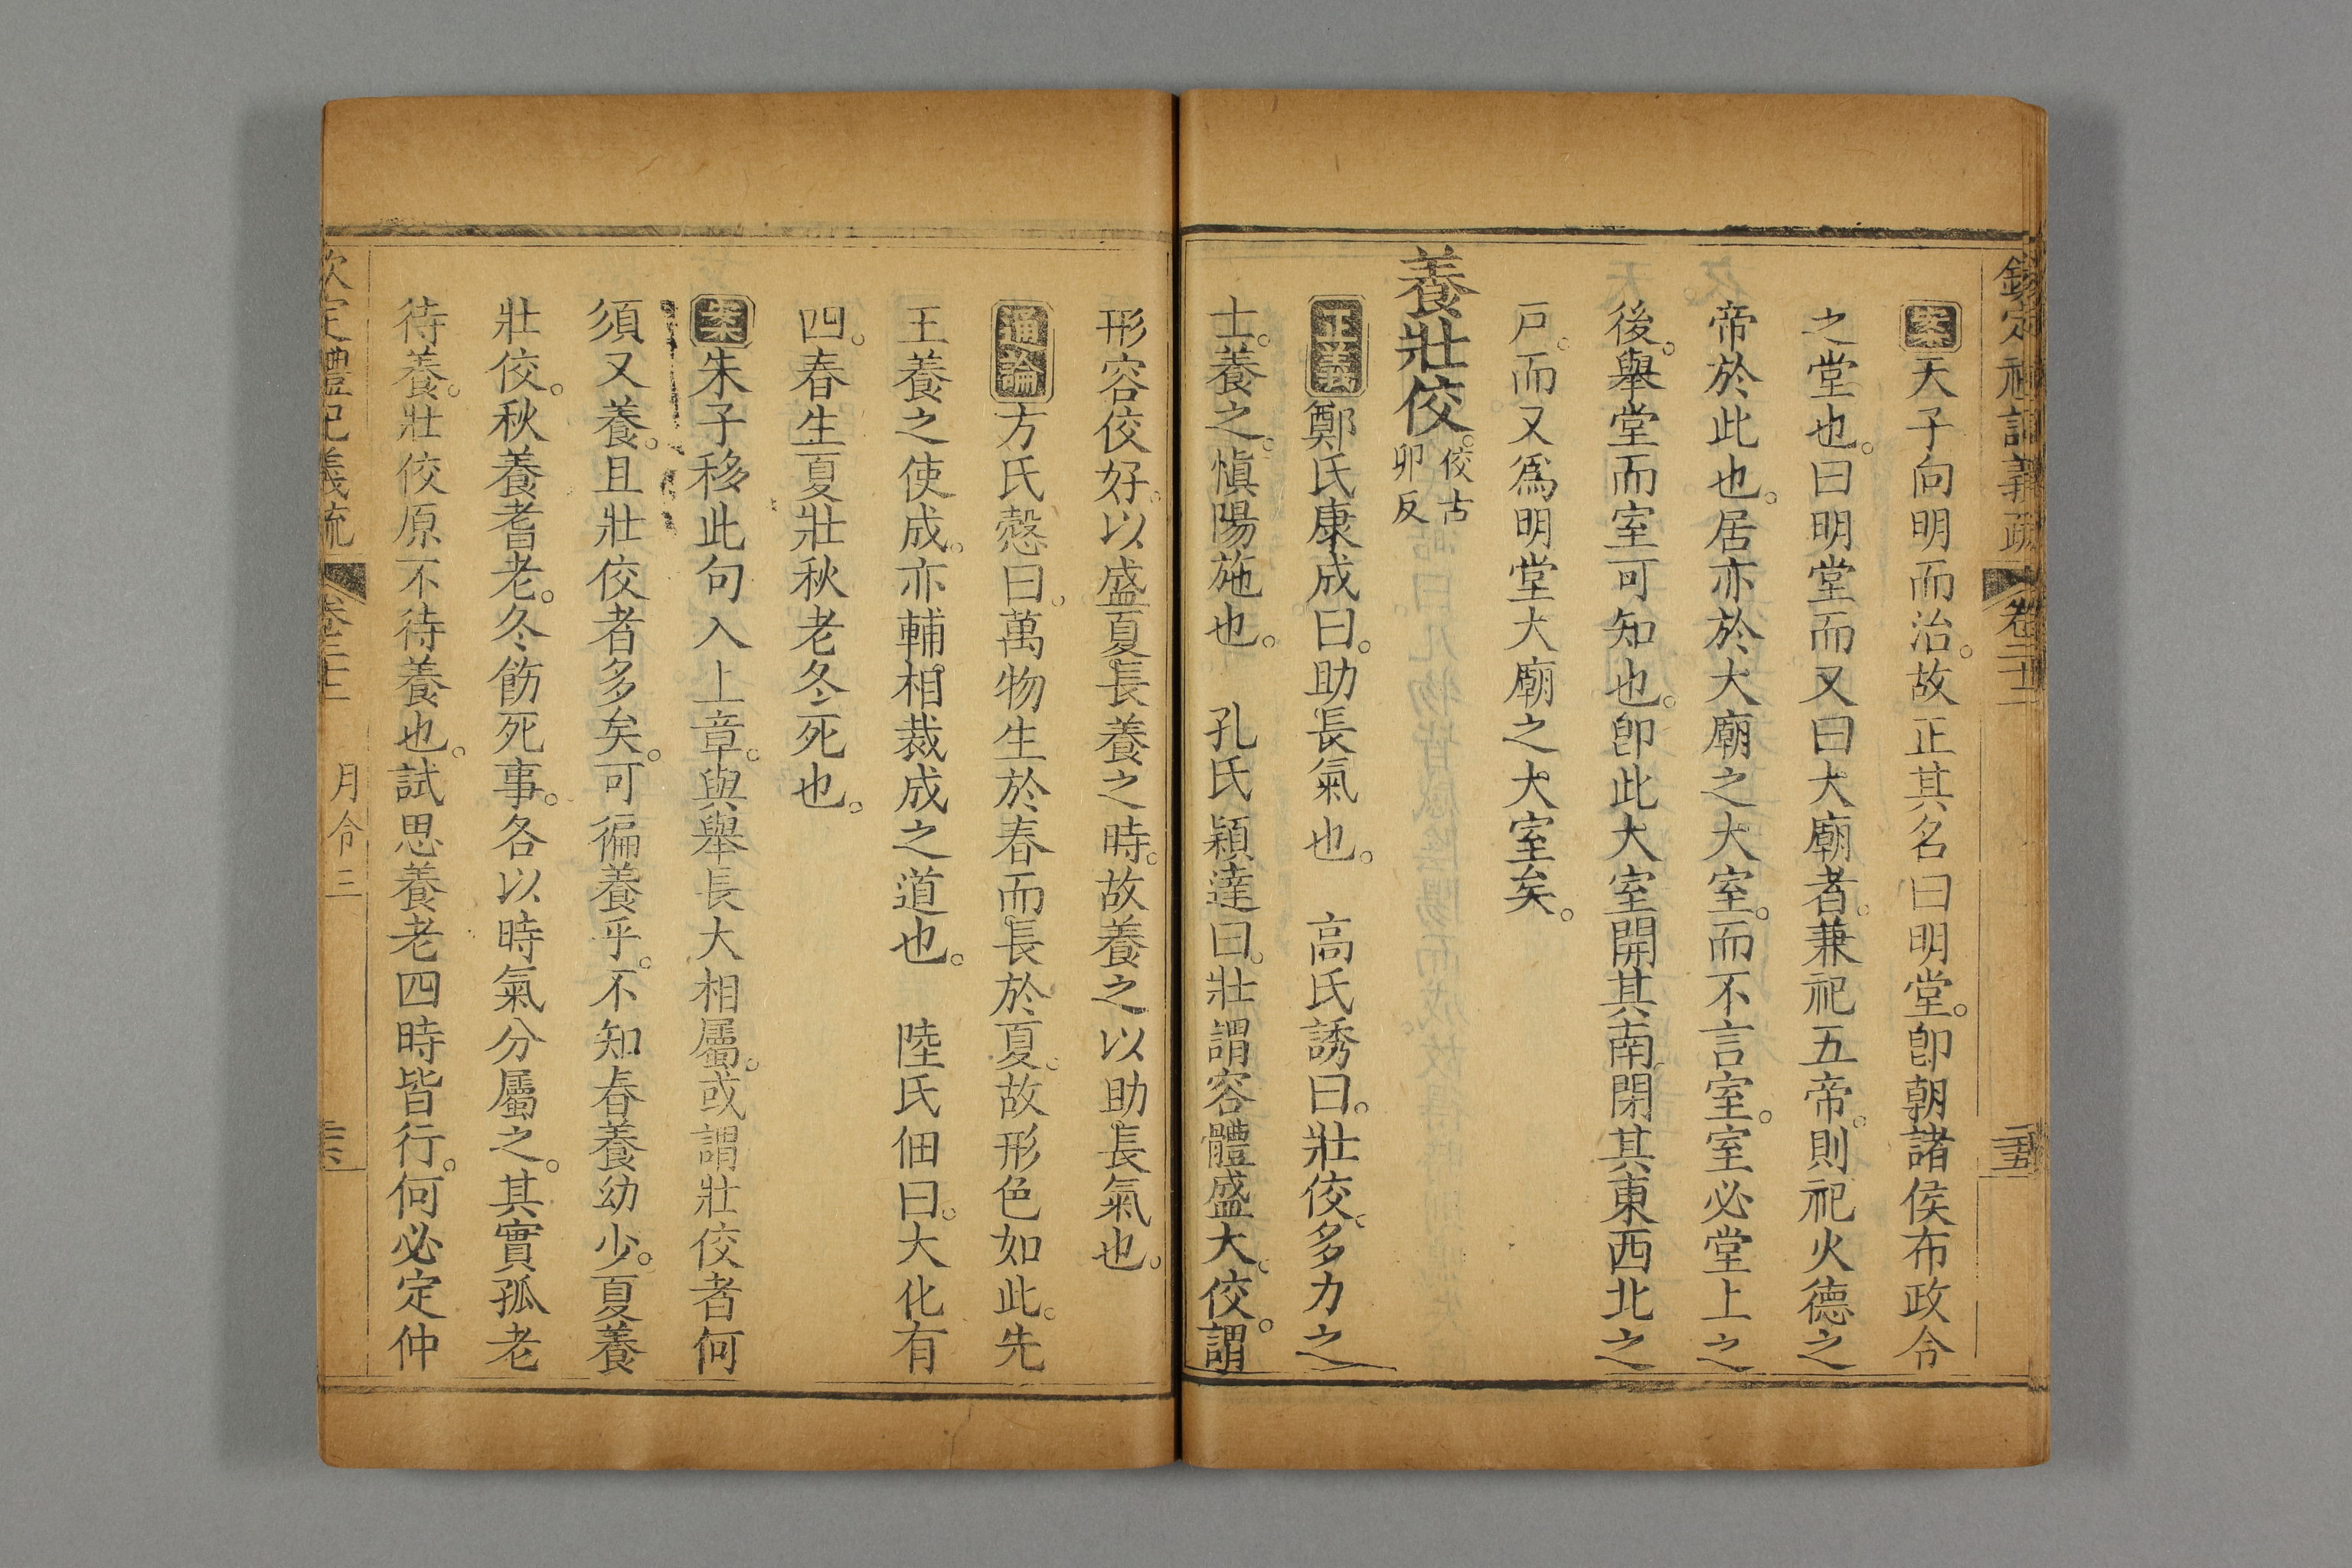 欽定禮記義疏 卷二十二 二十五
案天子向明而治。故正其名曰明堂。卽朝諸侯布政令
之堂也。曰明堂而又曰大廟者。兼祀五帝。則祀火德之
帝於此也。居亦於大廟之大室。而不言室。室必堂上之
後。舉堂而室可知也。卽此大室開其南。閉其東西北之
戸。而又爲明堂大廟之大室矣。
養壯佼。佼古卯反
正義鄭氏康成曰。助長氣也。　高氏誘曰。壯佼。多力之
士。養之。愼陽施也。　孔氏穎達曰。壯謂容體盛大。佼。謂
形容佼好。以盛夏長養之時。故養之以助長氣也。
通論方氏慤曰。萬物生於春而長於夏。故形色如此。先
王養之使成。亦輔相裁成之道也。　陸氏佃曰。大化有
四。春生夏壯秋老冬死也。
案朱子移此句入上章。與舉長大相屬。或謂壯佼者何
須又養。且壯佼者多矣。可徧養乎。不知春養幼少。夏養
壯佼。秋養耆老。冬飭死事。各以時氣分屬之。其實孤老
待養。壯佼原不待養也。試思養老四時皆行。何必定仲
欽定禮記義疏 月令三